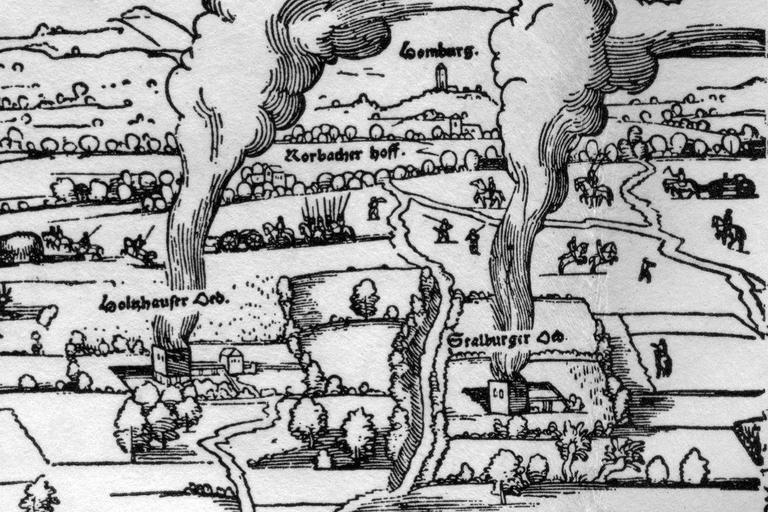 Homburg.
Rorbacher hoff.
Holtzhauser Oed.
Stalburger Oed.